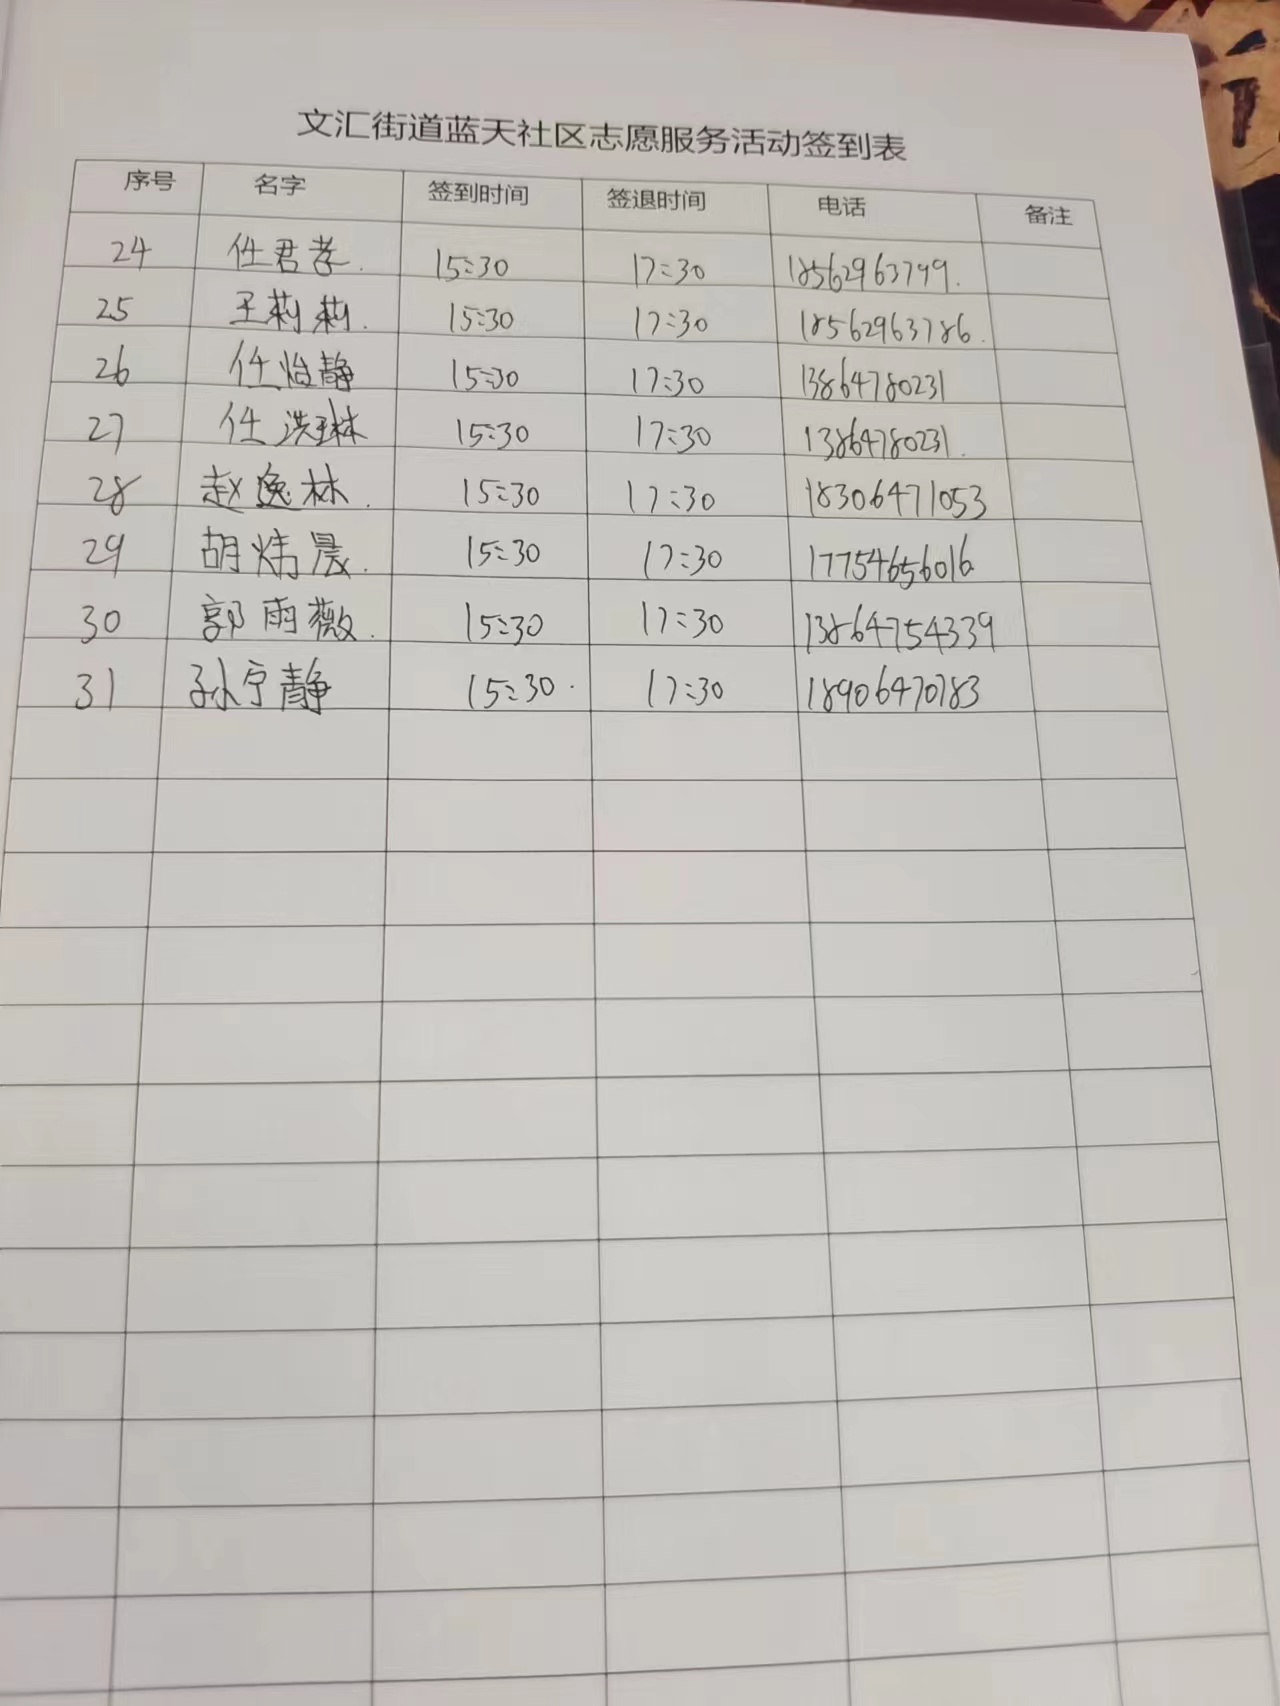 文汇街道蓝天社区志愿服务活动签到表
序号 名字 签到时间 签退时间 电话 备注
24 任君孝. 15:30 17:30 18562963799.
25 王莉莉. 15:30 17:30 18562963786.
26 任怡静 15:30 17:30 13864780231
27 任洪琳 15:30 17:30 13864780231.
28 赵逸林. 15:30 17:30 18306471053
29 胡炜晨. 15:30 17:30 17754656016
30 郭雨薇. 15:30 17:30 13864754339
31 孙宁静 15:30. 17:30 18906470783